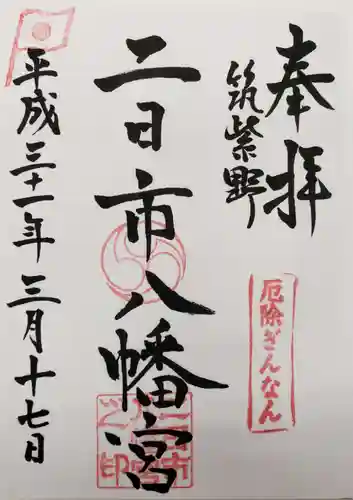 奉拝
筑紫野
二日市八幡宮
平成三十一年三月十七日
厄除ぎんなん